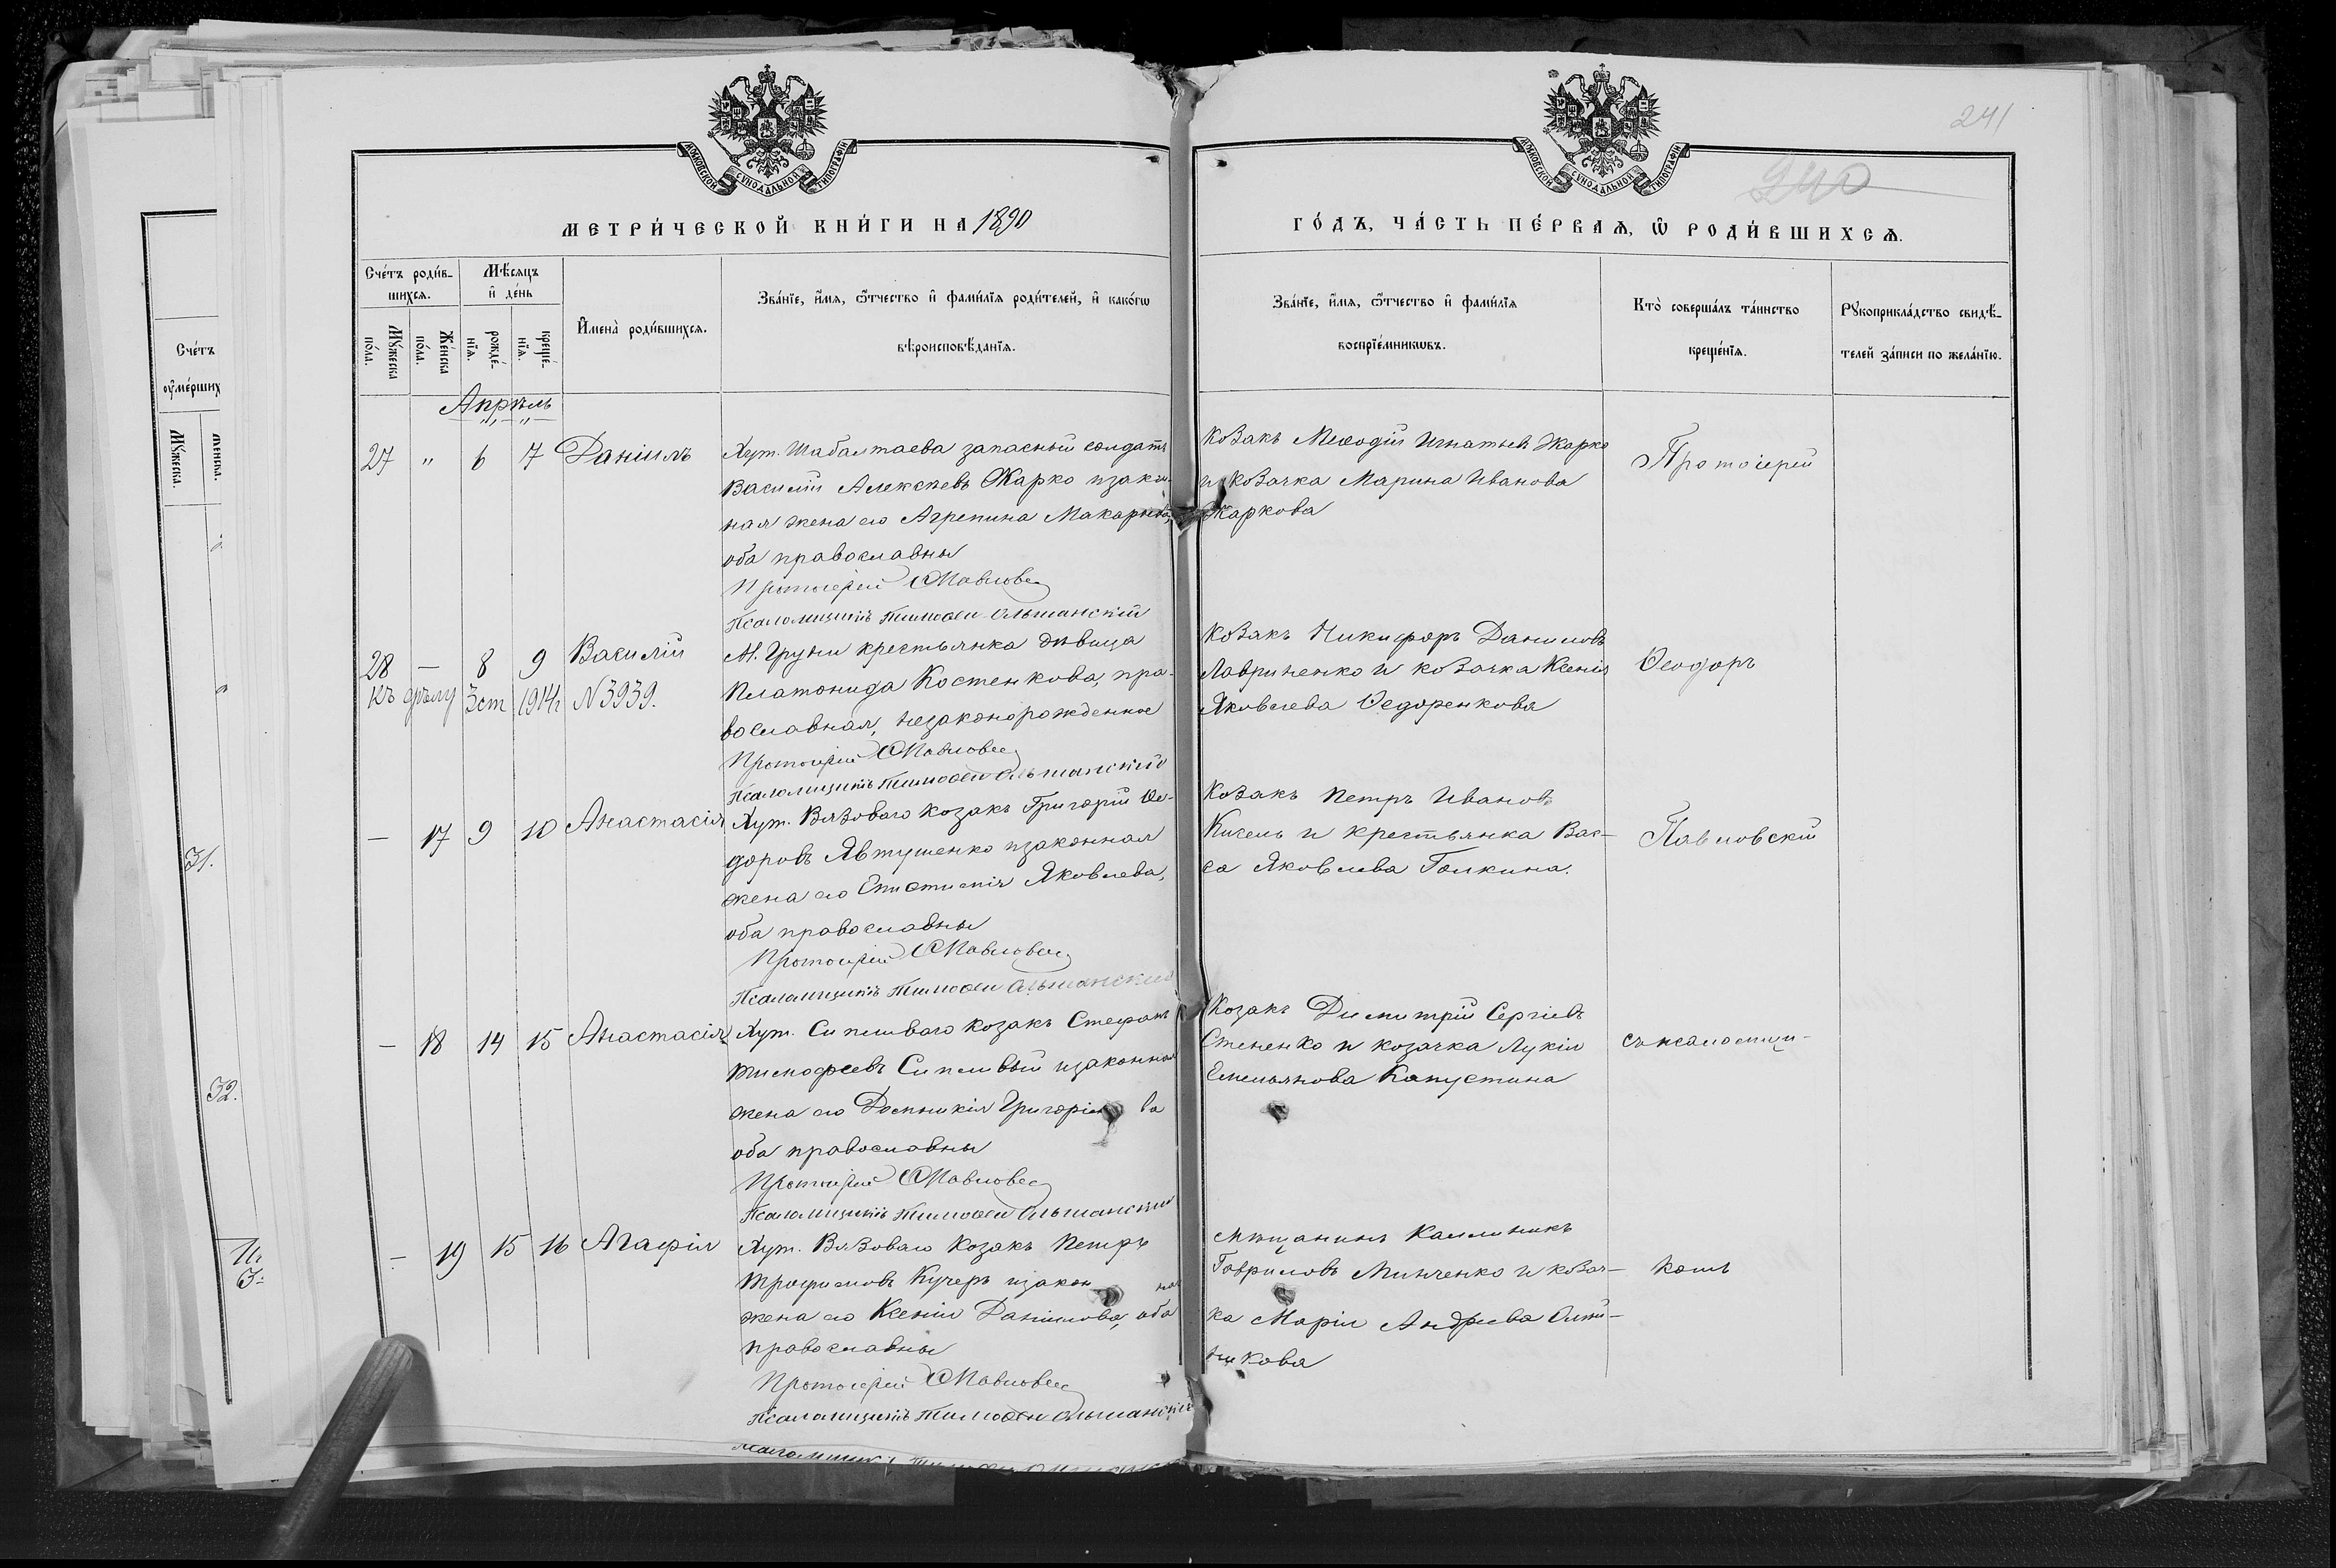 241
240
МОСКОВСКОЙ СѴНОДАЛЬНОЙ ТИПОГРАФІИ
МОСКОВСКОЙ СѴНОДАЛЬНОЙ ТИПОГРАФІИ
МЕТРИ́ЧЕСКОЙ КНИ́ГИ НА 1890
ГО́ДЪ, ЧА́СТЬ ПЕ́РВАѦ, Ѽ РОДИ́ВШИХСѦ.
Сче́тъ роди́в-
шихсѧ.
Мѣ́сѧцъ
и҆ де́нь
Мꙋ́жеска
по́ла.
Же́нска
по́ла.
рожде́-
нїѧ.
креще́-
нїѧ.
И҆мена̀ роди́вшихсѧ.
Зва́нїе, и҆́мѧ, ѻ҆́тчество и҆ фами́лїѧ роди́телей, и҆ како́гѡ
вѣроисповѣ́данїѧ.
Зва́нїе, и҆́мѧ, ѻ҆́тчество и҆ фами́лїѧ
воспрїе́мникѡвъ.
Кто̀ соверша́лъ та́инство
креще́нїѧ.
Рꙋкоприкла́дство свидѣ́-
телей за́писи по жела́нїю.
Апрѣль
27 " 6 7 Даніилъ
Хут. Шабалтаева запасный солдатъ
Василій Алексѣевъ Жарко и закон-
ная жена его Агрепина Макарьева,
оба православны
Протоіерей
Псаломщикъ Тимоѳей Ольшанскій
Козакъ Меѳодій Игнатьевъ Жарко
и козачка Марина Иванова
Жаркова
Протоіерей
28 — 8 9 Василій
Къ дѣлу 3 ст 1914 г N 3939.
М. Груни крестьянка дѣвица
Платонида Костенкова, пра-
вославная, незаконорожденное
Протоіерей
Псаломщикъ Тимоѳей Ольшанскій
Козакъ Никифоръ Даниловъ
Лавриненко и козачка Ксенія
Яковлева Ѳедоренкова
Ѳеодоръ
— 17 9 10 Анастасія
Хут. Вязоваго козакъ Григорій Ѳе-
доровъ Явтушенко и законная
жена его Епистимія Яковлева,
оба православны
Протоіерей
Псаломщикъ Тимоѳей Ольшанскій
Козакъ Петръ Ивановъ
Кисель и крестьянка Вас-
са Яковлева Галкина.
Павловскій
— 18 14 15 Анастасія
Хут. Сипливаго козакъ Стефанъ
Тимофеевъ Сипливый и законная
жена его Григоріева
оба православны
Протоіерей
Псаломщикъ Тимоѳей Ольшанскій
Козакъ Димитрій Сергіевъ
Стененко и козачка Лукія
Емельянова Капустина
съ псаломщи-
— 19 15 16 Агафія
Хут. Вязоваго козакъ Петръ
Трофимовъ Кучеръ и законная
жена его Ксенія Даніилова, оба
православны
Протоіерей
Псаломщикъ Тимоѳей Ольшанскій
Мѣщанинъ Каллиникъ
Гавриловъ Минченко и козач-
ка Марія Андреева
никова
комъ
Сче́тъ
оу҆ме́рших
Мꙋ́жеска.
Женска.
31.
32.